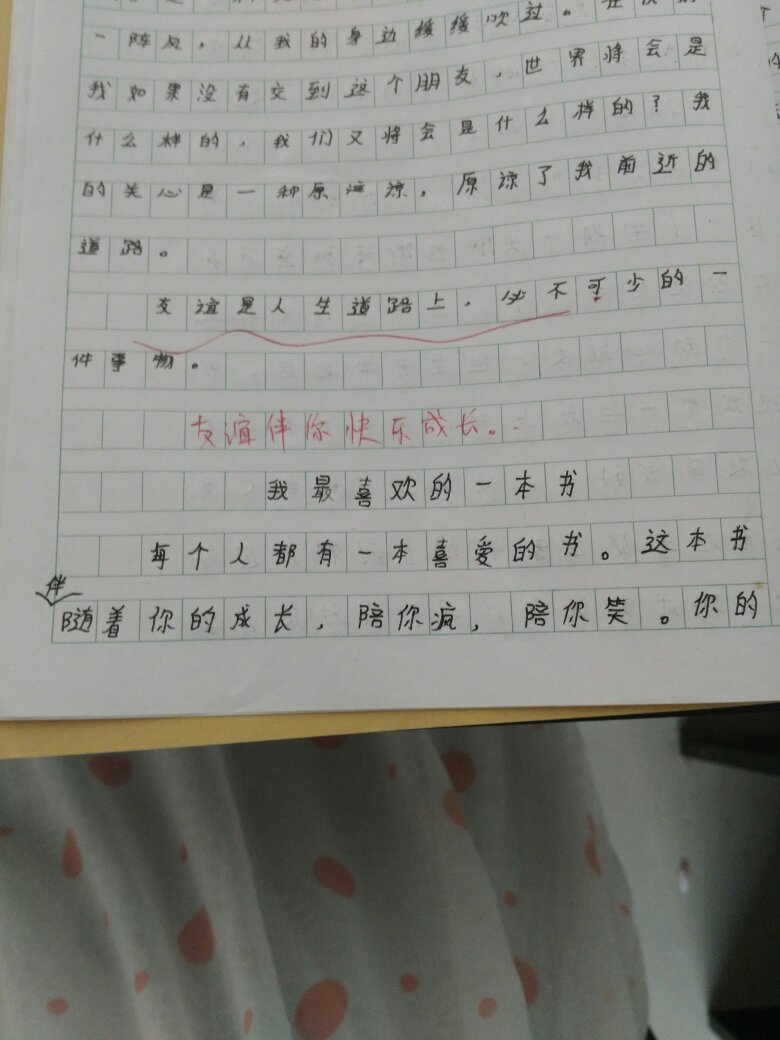 一阵风，从我的身边缓缓吹过。在
我如果没有交到这个朋友，世界将会是
什么样的，我们又将会是什么样的？我
的关心是一种原谅，原谅了我前近的
道路。
友谊是人生道路上，必不可少的一
件事物。
友谊伴你快乐成长。
我最喜欢的一本书
每个人都有一本喜爱的书。这本书
伴
随着你的成长，陪你疯，陪你笑。你的